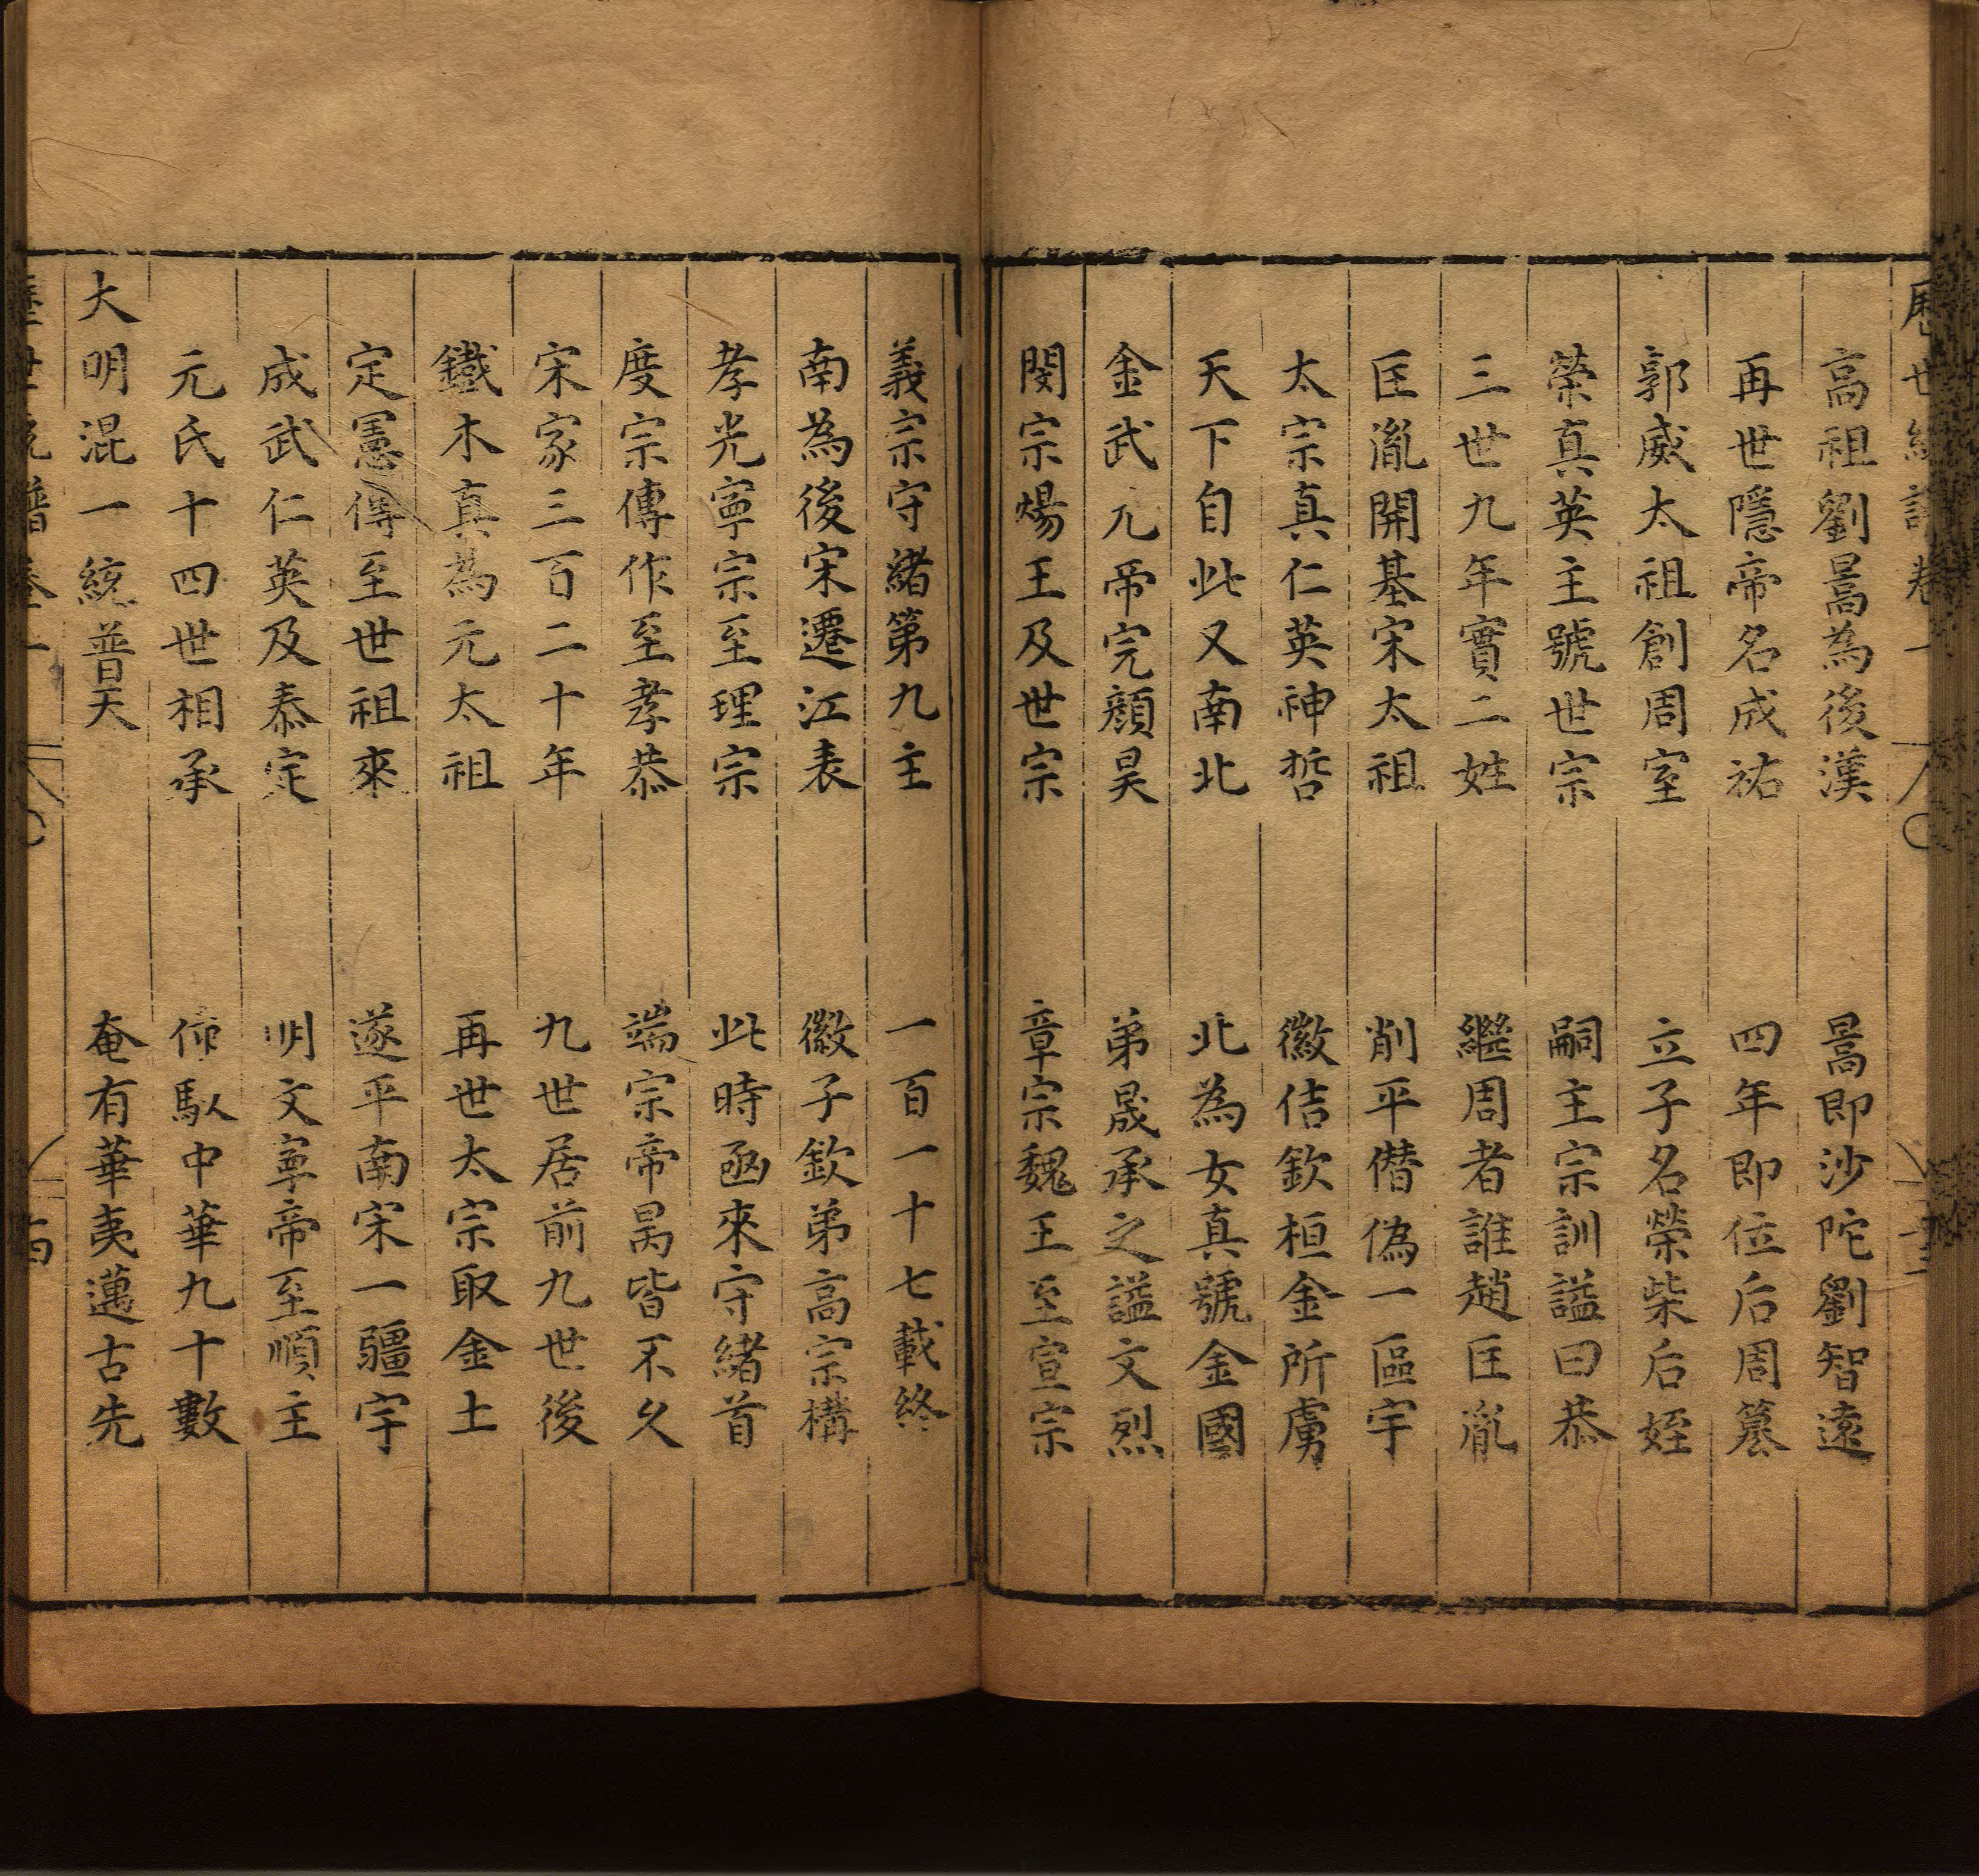 高祖劉暠為後漢　暠即沙陀劉智遠
再世隱帝名成祐　四年即位后周簒
郭威太祖創周室　立子名榮柴后姪
榮真英主號世宗　嗣主宗訓謚曰恭
三世九年實二姓　繼周者誰趙匡胤
匡胤開基宋太祖　削平僭偽一區宇
太宗真仁英神哲　徽佶欽桓金所虜
天下自此又南北　北為女真號金國
金武元帝完顔旻　弟晟承之謚文烈
閔宗煬王及世宗　章宗魏王至宣宗
義宗守緒第九主　一百一十七載終
南為後宋遷江表　徽子欽弟高宗構
孝光寧宗至理宗　此時函來守緒首
度宗傳作至孝恭　端宗帝昺皆不久
宋家三百二十年　九世居前九世後
鐵木真為元太祖　再世太宗取金土
定憲傳至世祖來　遂平南宋一疆宇
成武仁英及泰定　明文寧帝至順主
元氏十四世相承　佈馭中華九十數
大明混一統普天　奄有華夷邁古先